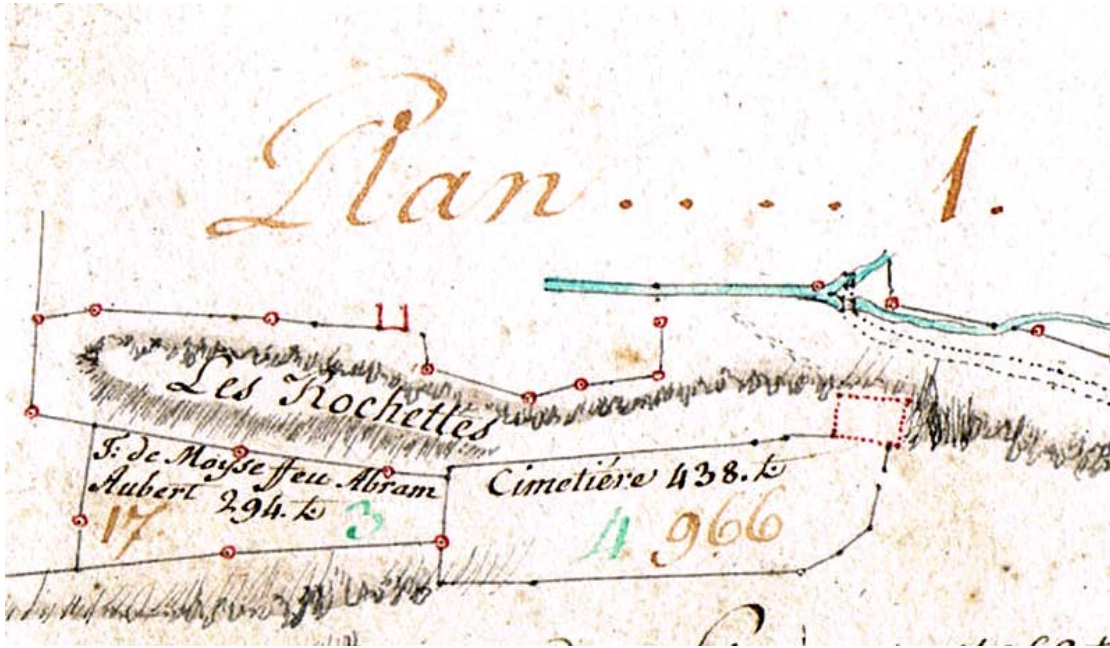 Plan .... 1.
Les Rochettes
J: de Moyse ffeu Abram
Aubert 294.t
17 3
Cimetiére 438.t
4 966